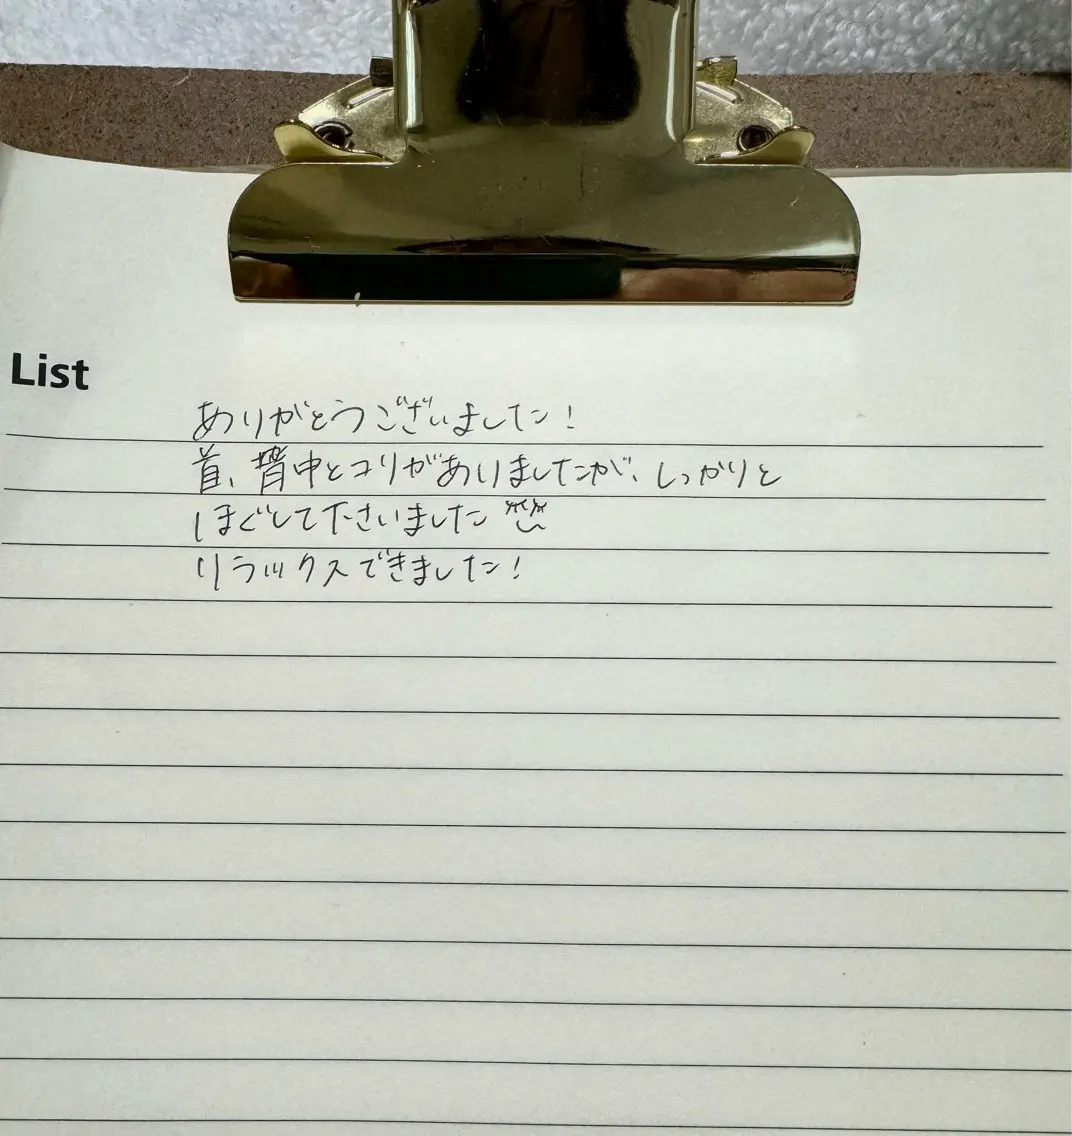 List
ありがとうございました!
首、背中とコリがありましたが、しっかりと
ほぐして下さいました
リラックスできました!